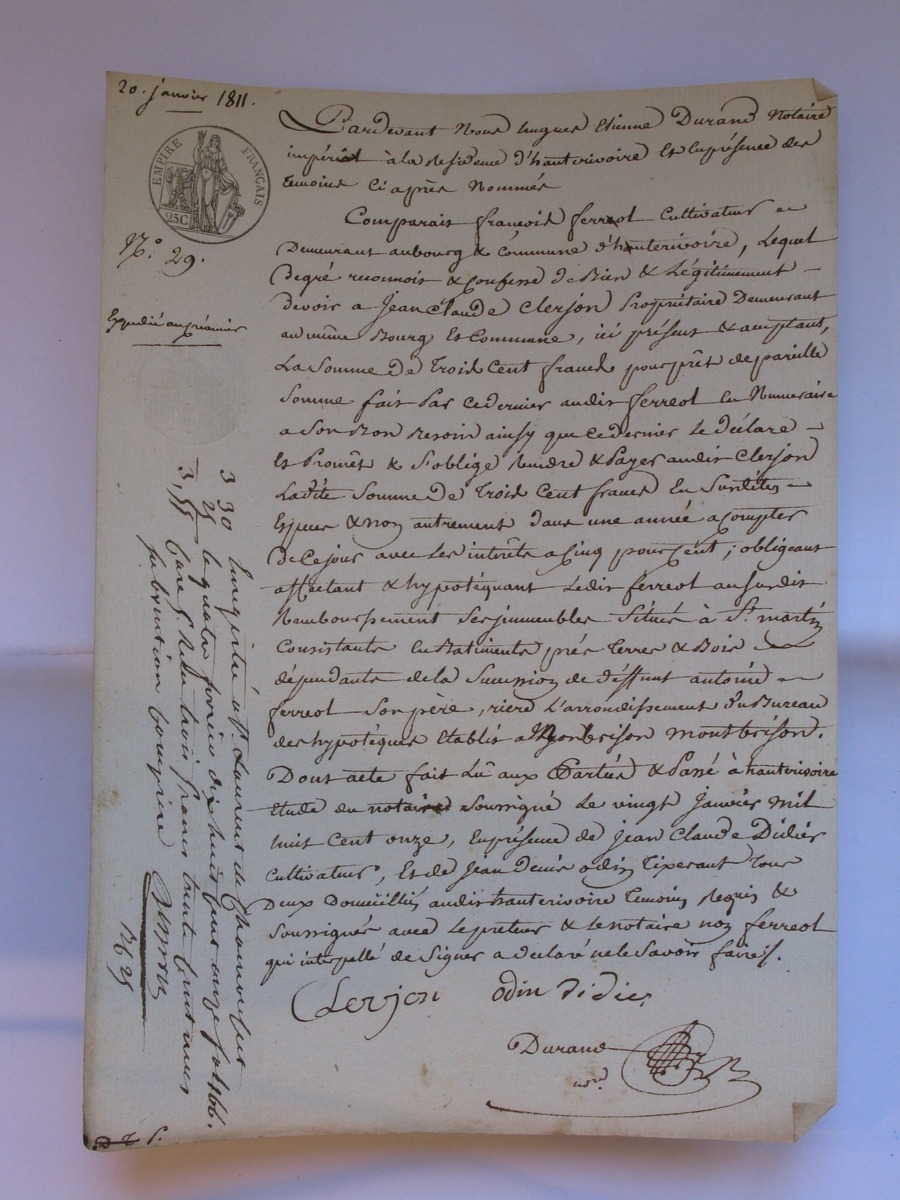 20. janvier 1811.
EMPIRE FRANÇAIS
25C
N.º 29.
Expedié au créancier
Pardevant Nous hugues Etienne Durand Notaire
impérial à la residence d'hauterivoire Et en présence des
temoins Ci après Nommés
Comparait françois ferreol Cultivateur
Demeurant au bourg & Commune d'hauterivoire, Lequel
Degré reconnois & Confesse de Bien & Légitimement
Devoir a Jean Claude Clerjon Propriétaire Demeurant
au même Bourg Et Commune, ici présent & acceptant,
La Somme De Trois Cent francs pour prêt de pareille
Somme fait Par ce dernier audit ferreol En Numeraire
a Son Bon Besoin ainsy que ce dernier Le déclare
Et Promêt & S'oblige Rendre & Payer audit Clerjon
Ladite Somme De Trois Cent francs En Surdites
Especes & non autrement dans une année a Compter
De Ce jour avec Les intérêts a Cinq pour Cent ; obligeant
affectant & hypotéquant Ledit ferreol au Surdit
Remboursement Ses immeubles Situés à St. martin
Consistants En Batiments prés Terres & Bois
dépendants de la Succession de Déffunt antoine
ferreol Son père, riere L'arrondissement du Bureau
des hypotéques Etablis a montbrison.
Dont acte fait Lû aux Parties & Passé à hauterivoire
Etude du notaire Soussigné Le vingt Janvier mil
huit Cent onze, En présence de Jean Claude Didier
Cultivateur, Et de Jean Denis odin Tixerant Tous
Deux Domiciliés audit hauterivoire Temoins Requis &
Soussignés avec Le preteur & Le notaire non ferreol
qui interpellé de Signer a déclaré ne le Savoir faire
Clerjon odin didier
Durand
nore.
3 30 Enregistré à St. Laurent de Chamousset
25 le quatre fevrier dix huit cent onze fol. 166.
3, 55 trois francs trente centimes
subvention comprise